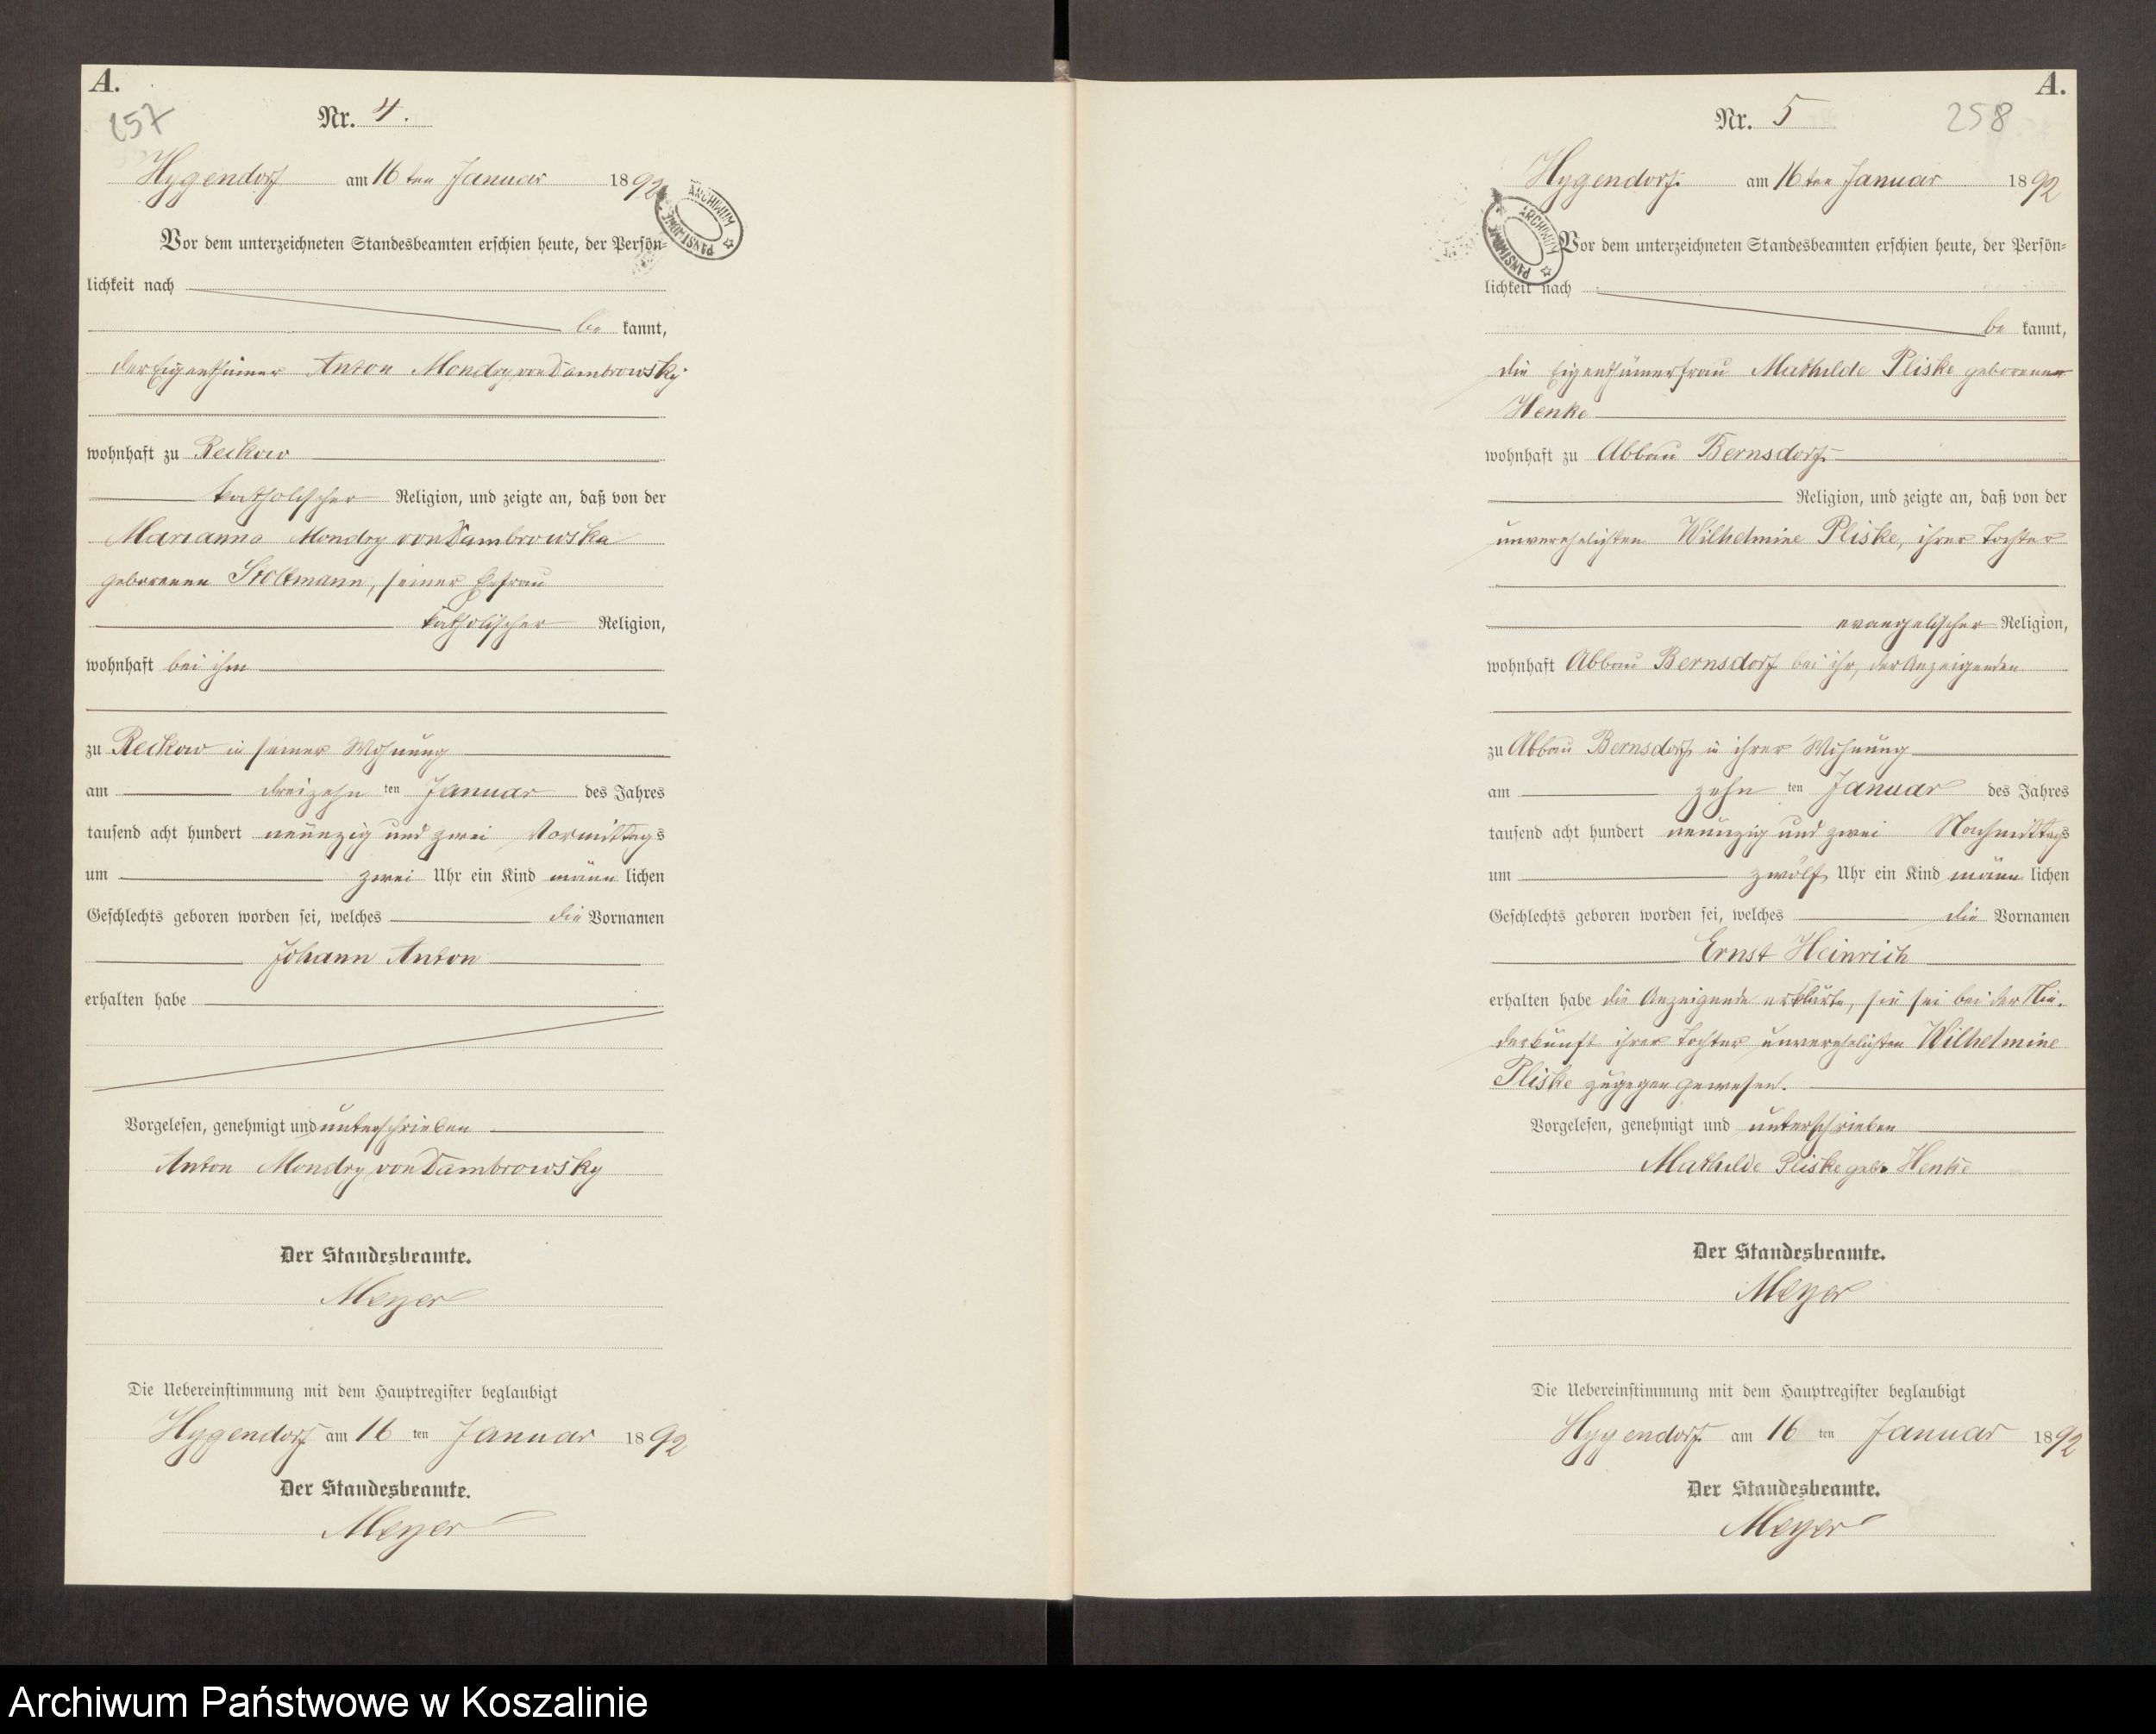 A.
257
Nr. 4.
Hygendorf am 16ten Januar 1892
ARCHIWUM PAŃSTWOWE
Vor dem unterzeichneten Standesbeamten erschien heute, der Persön-
lichkeit nach
be kannt,
der Eigenthümer Anton Mondry von Dambrowsky
wohnhaft zu Reckow
katholischer Religion, und zeigte an, daß von der
Marianna Mondry von Dambrowska
geborenen Stoltmann, seiner Ehefrau
katholischer Religion,
wohnhaft bei ihm
zu Reckow in seiner Wohnung
am dreizehn ten Januar des Jahres
tausend acht hundert neunzig und zwei Vormittags
um zwei Uhr ein Kind männ lichen
Geschlechts geboren worden sei, welches die Vornamen
Johann Anton
erhalten habe
Vorgelesen, genehmigt und unterschrieben
Anton Mondry von Dambrowsky
Der Standesbeamte.
Meyer
Die Uebereinstimmung mit dem Hauptregister beglaubigt
Hygendorf am 16 ten Januar 1892
Der Standesbeamte.
Meyer
A.
Nr. 5
258
Hygendorf. am 16ten Januar 1892
ARCHIWUM PAŃSTWOWE
Vor dem unterzeichneten Standesbeamten erschien heute, der Persön-
lichkeit nach
be kannt,
die Eigenthümerfrau Mathilde Pliske geborene
Henke
wohnhaft zu Abbau Bernsdorf
Religion, und zeigte an, daß von der
unverehelichten Wilhelmine Pliske, ihrer Tochter
evangelischer Religion,
wohnhaft Abbau Bernsdorf bei ihr, der Anzeigenden
zu Abbau Bernsdorf in ihrer Wohnung
am zehn ten Januar des Jahres
tausend acht hundert neunzig und zwei Nachmittags
um zwölf Uhr ein Kind männ lichen
Geschlechts geboren worden sei, welches die Vornamen
Ernst Heinrich
erhalten habe die Anzeigende erklärte, sie sei bei der Nie-
derkunft ihrer Tochter unverehelichten Wilhelmine
Pliske zugegen gewesen.
Vorgelesen, genehmigt und unterschrieben
Mathilde Pliske geb. Henke
Der Standesbeamte.
Meyer
Die Uebereinstimmung mit dem Hauptregister beglaubigt
Hygendorf. am 16 ten Januar 1892
Der Standesbeamte.
Meyer
Archiwum Państwowe w Koszalinie